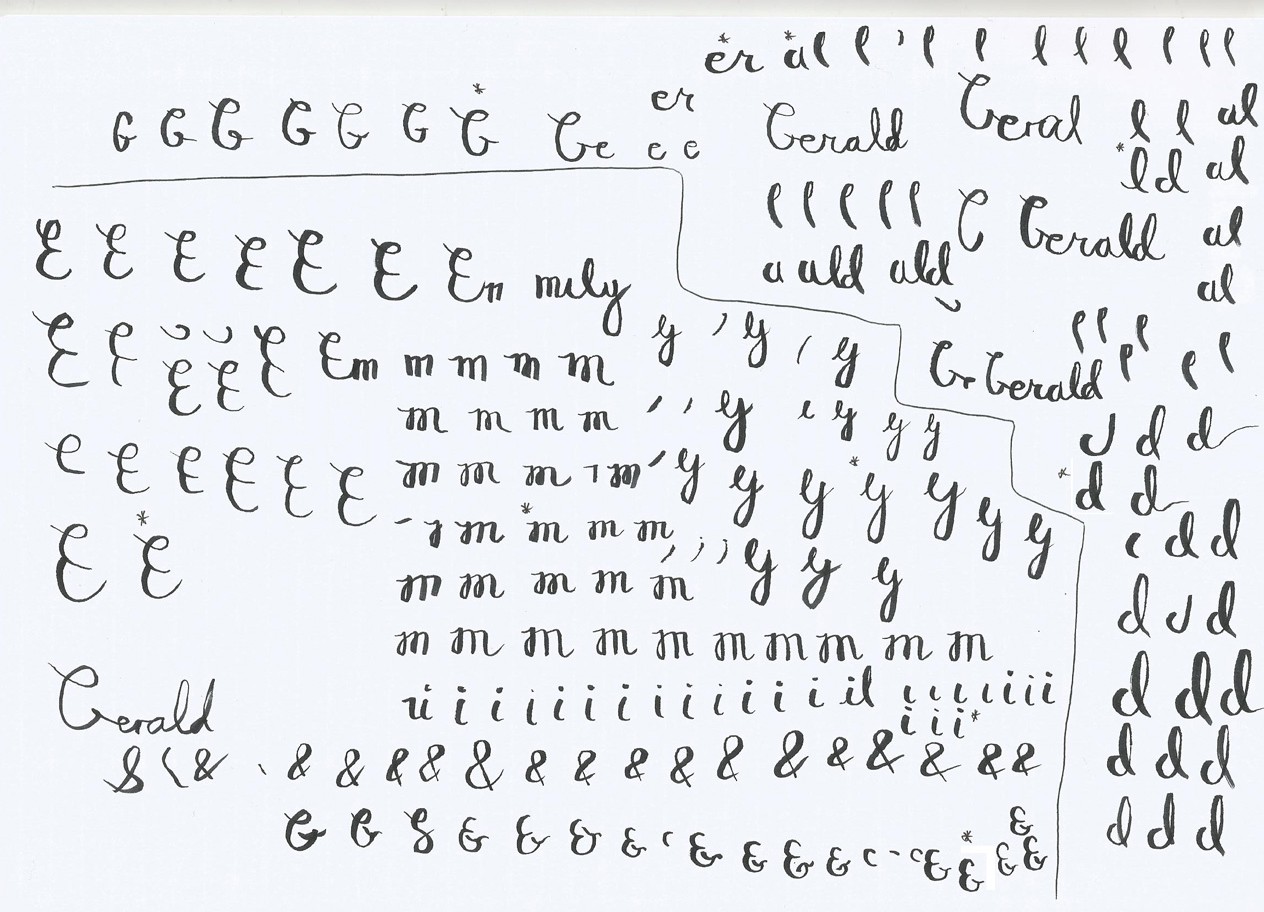 er al l l l l l l l l l
G G G G G G G Ge er e e
Gerald Geral l l al
ld al
l l l l l G Gerald al
a ald ald al
E E E E E E En mily
E E E E E Em m m m m y y y
l l l l l
Gr Gerald
m m m m y y y y
d d d
E E E E E E m m m m y y y y y y y
d d
E E m m m m m
d d
m m m m m y y y
d d
m m m m m m m m m m
d d d
ii i i i i i i i i i i i il i i i i i i i
i i i
Gerald
& & & & & & & & & & & & & & & & & &
d d d
& & & & & & & & & & & & & & & &
d d d